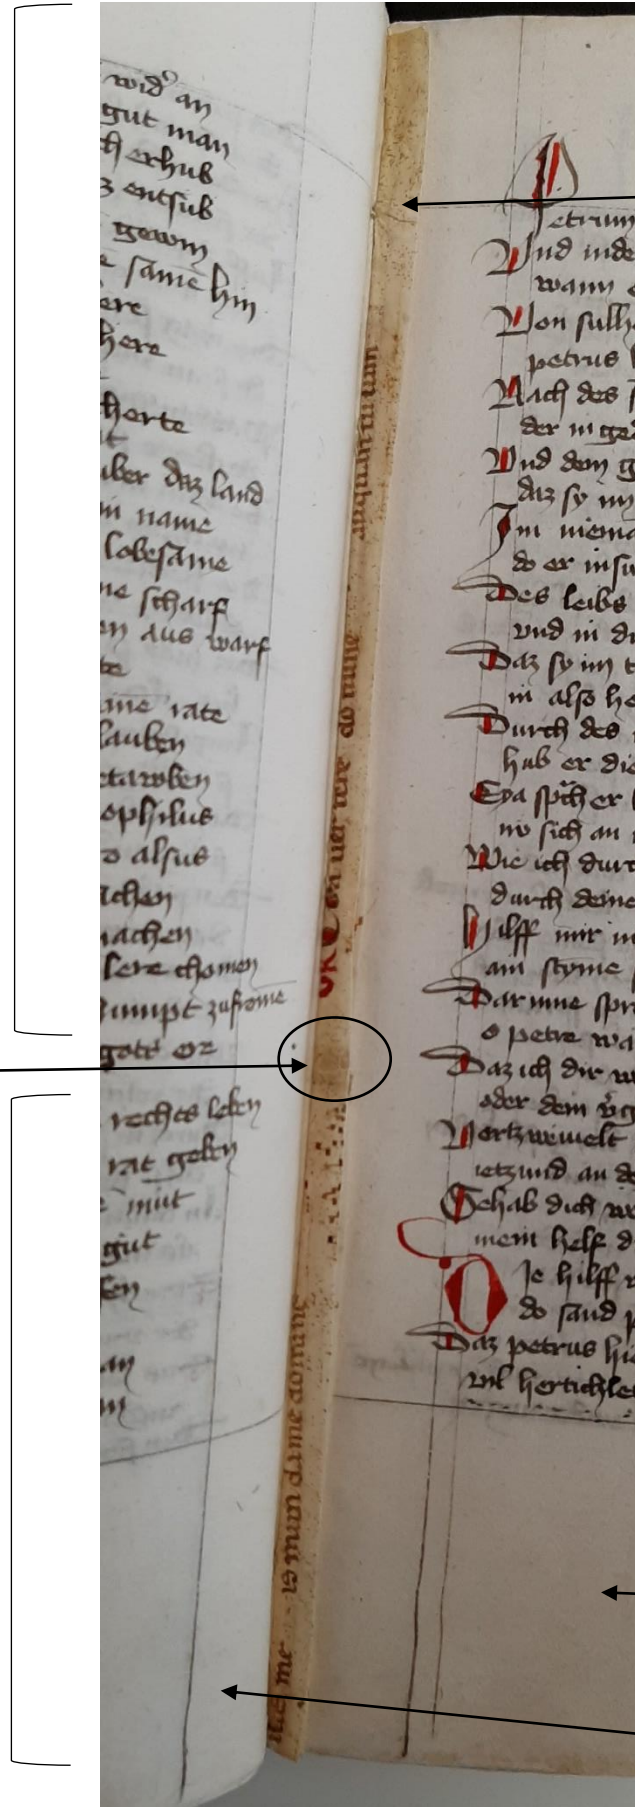 wid᷒ an
gut man
ch erhub
z entsub
gewin
e samē hin
ere
here
herte
t
uber daz land
in name
lobesame
ne scharf
en aus warf
te
ane rate
lauben
etawben
ophilus
o alsus
achen
machen
lere chomen
zufrome
gote er
rechts leben
rat geben
mut
gut
ken
an
in
aliquantulum
Conuertere domine
OR
is mum da me domine
me
Petrum
Und inde
wann e
Von sulh
petrus
Nach des s
der in ge
Und dem g
daz sy im
Im niema
do er insu
Des leibs
vnd in di
Daz sy im t
in also he
Durch des
hub er die
Eya sp̄ch er
no sich an
Wie ich durc
durch deine
Hilff mir in
ain styme
Dar inne spr
o petre wa
Daz ich dir w
oder dem
Vertzweiuelt
ietzund an de
Gehab dich wo
mein helf d
Die hilff
do sand p
Daz petrus hie
vil hertichle